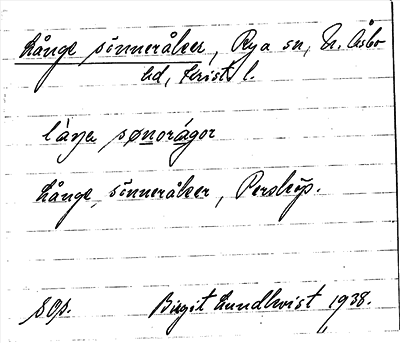 Långe sönneråker, Rya sn, N. Åsbo
hd, Krist. l.
låŋe sønorågor
Långe sönneråker, Perstorp.
sOp.
Birgit Lundkvist 1938.